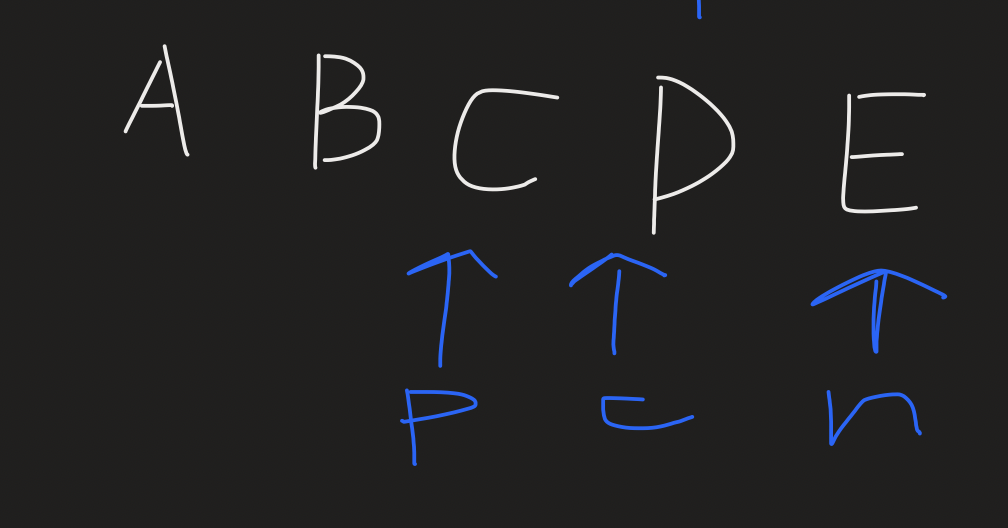 A B C D E
p c n